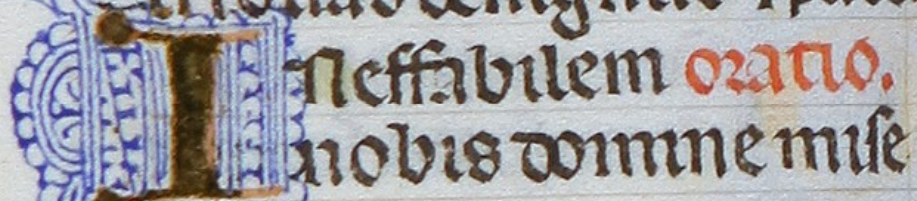 Ineffabilem oratio.
nobis domine mise